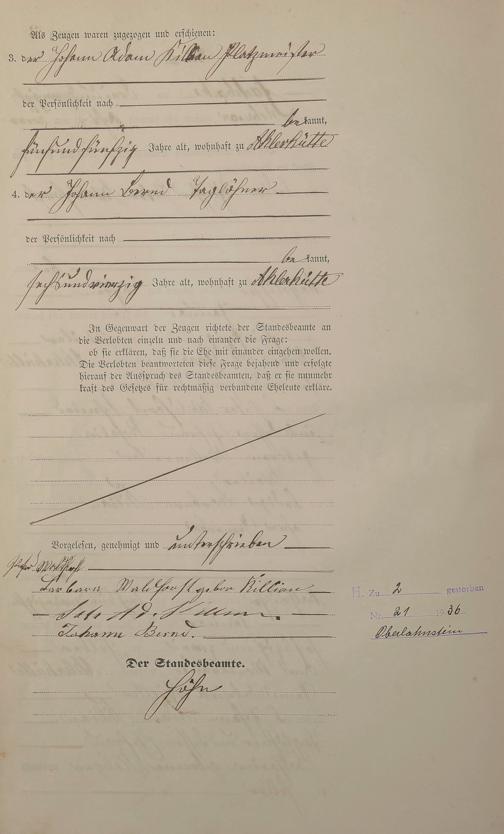 Als Zeugen waren zugezogen und erschienen:
3. der Johann Adam Killian Platzmeister
der Persönlichkeit nach
be kannt,
fünfundfünfzig Jahre alt, wohnhaft zu Ahlerhütte
4. der Johann Bernd Taglöhner
der Persönlichkeit nach
be kannt,
sechsundvierzig Jahre alt, wohnhaft zu Ahlerhütte
In Gegenwart der Zeugen richtete der Standesbeamte an
die Verlobten einzeln und nach einander die Frage:
ob sie erklären, daß sie die Ehe mit einander eingehen wollen.
Die Verlobten beantworteten diese Frage bejahend und erfolgte
hierauf der Ausspruch des Standesbeamten, daß er sie nunmehr
kraft des Gesetzes für rechtmäßig verbundene Eheleute erkläre.
Vorgelesen, genehmigt und unterschrieben
Barbara Waldforst geber Killian
Joh. Ad. Killian.
Johann Bernd.
Der Standesbeamte.
Höhn
H. Zu 2 gestorben
Nr. 21 1936
Oberlahnstein